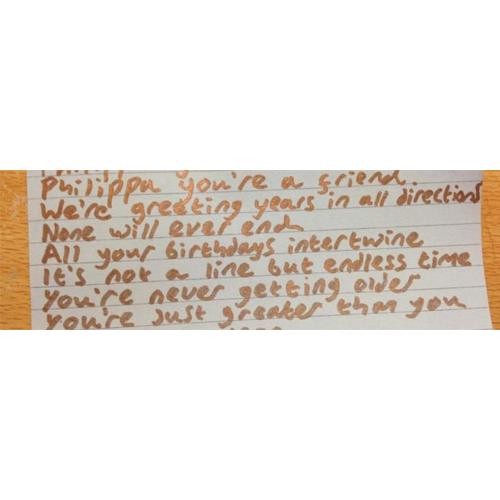 Philippa you're a friend.
We're greeting years in all directions
None will ever end
All your birthdays intertwine
It's not a line but endless time
You're never getting older
You're just greater than you